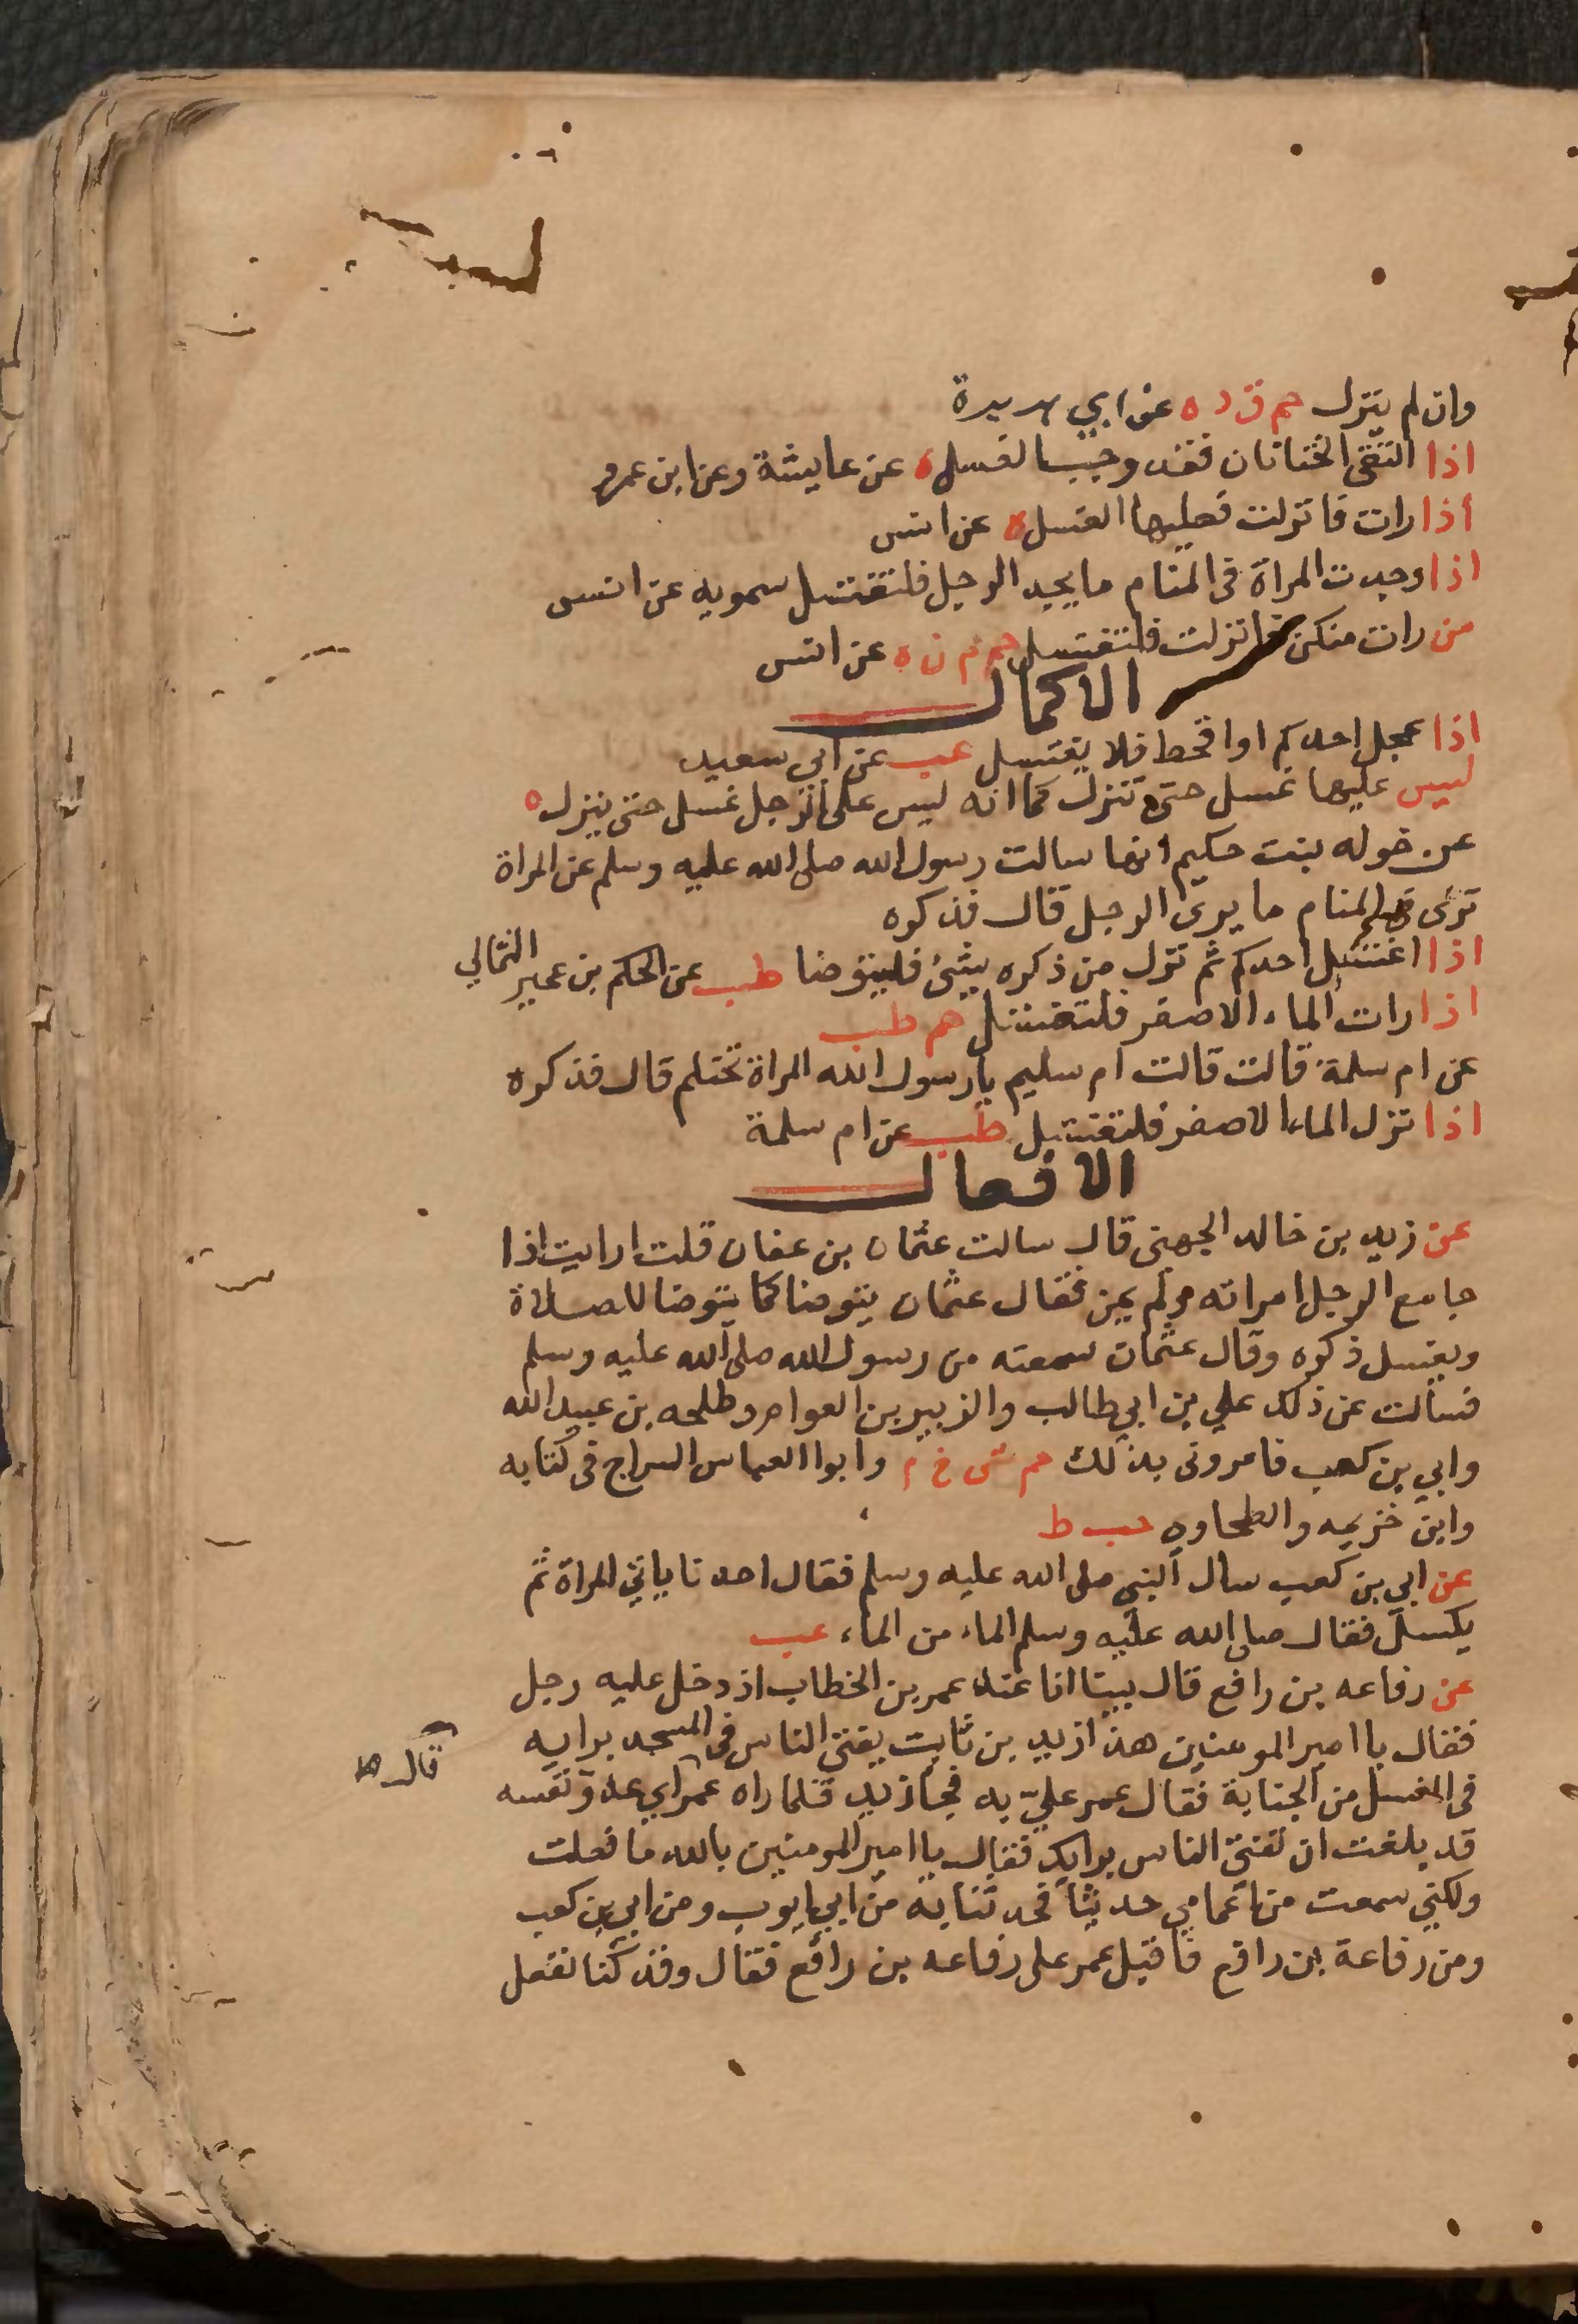 وان لم ينزل حم ق د ه عن ابي هريرة
اذا التقى الختانان فقد وجب الغسل ه عن عايشة وعن ابن عمرو
اذا رات فانزلت فعليها الغسل ه عن انس
اذا وجدت المراة في المنام ما يجد الرجل فلتغتسل سمويه عن انس
من رات منكن فانزلت فلتغتسل حم م ن ه عن انس
الاكمال
اذا عجل احدكم او اقحط فلا يغتسل عب عن ابي سعيد
ليس عليها غسل حتى تنزل كما انه ليس على الرجل غسل حتى ينزل ه
عن خوله بنت حكيم انها سالت رسول الله صلى الله عليه وسلم عن المراة
ترى في المنام ما يرى الرجل قال فذكره
اذا اغتسل احدكم ثم نزل من ذكره شئ فليتوضا طب عن الحكم بن عمير الثمالي
اذا رات الماء الاصفر فلتغتسل حم طب
عن ام سلمة قالت قالت ام سليم يا رسول الله المراة تحتلم قال فذكره
اذا نزل الماء الاصفر فلتغتسل طب عن ام سلمة
الافعال
عن زيد بن خالد الجهني قال سالت عثمان بن عفان قلت ارايت اذا
جامع الرجل امراته ولم يمن فقال عثمان يتوضا كما يتوضا للصلاة
ويغسل ذكره وقال عثمان سمعته من رسول الله صلى الله عليه وسلم
فسالت عن ذلك علي بن ابي طالب والزبير بن العوام وطلحه بن عبيد الله
وابي بن كعب فامروني بذلك حم ش خ م وابوا العباس السراج في كتابه
وابن خزيمه والطحاوي حب ط
عن ابي بن كعب سال النبي صلى الله عليه وسلم فقال احدنا ياتي المراة ثم
يكسل فقال صلى الله عليه وسلم الماء من الماء عب
عن رفاعه بن رافع قال بينا انا عند عمر بن الخطاب اذ دخل عليه رجل
فقال يا امير المومنين هذا زيد بن ثابت يفتي الناس في المسجد برايه
في الغسل من الجنابة فقال عمر عليّ به فجا زيد فلما راه عمر اي عدو نفسه
قال
قد بلغت ان تفتي الناس برايك فقال يا امير المومنين بالله ما فعلت
ولكني سمعت من اعمامي حديثا فحدثنا به من ابي ايوب ومن ابي بن كعب
ومن رفاعة بن رافع فاقبل عمر على رفاعه بن رافع فقال وقد كنا نفعل